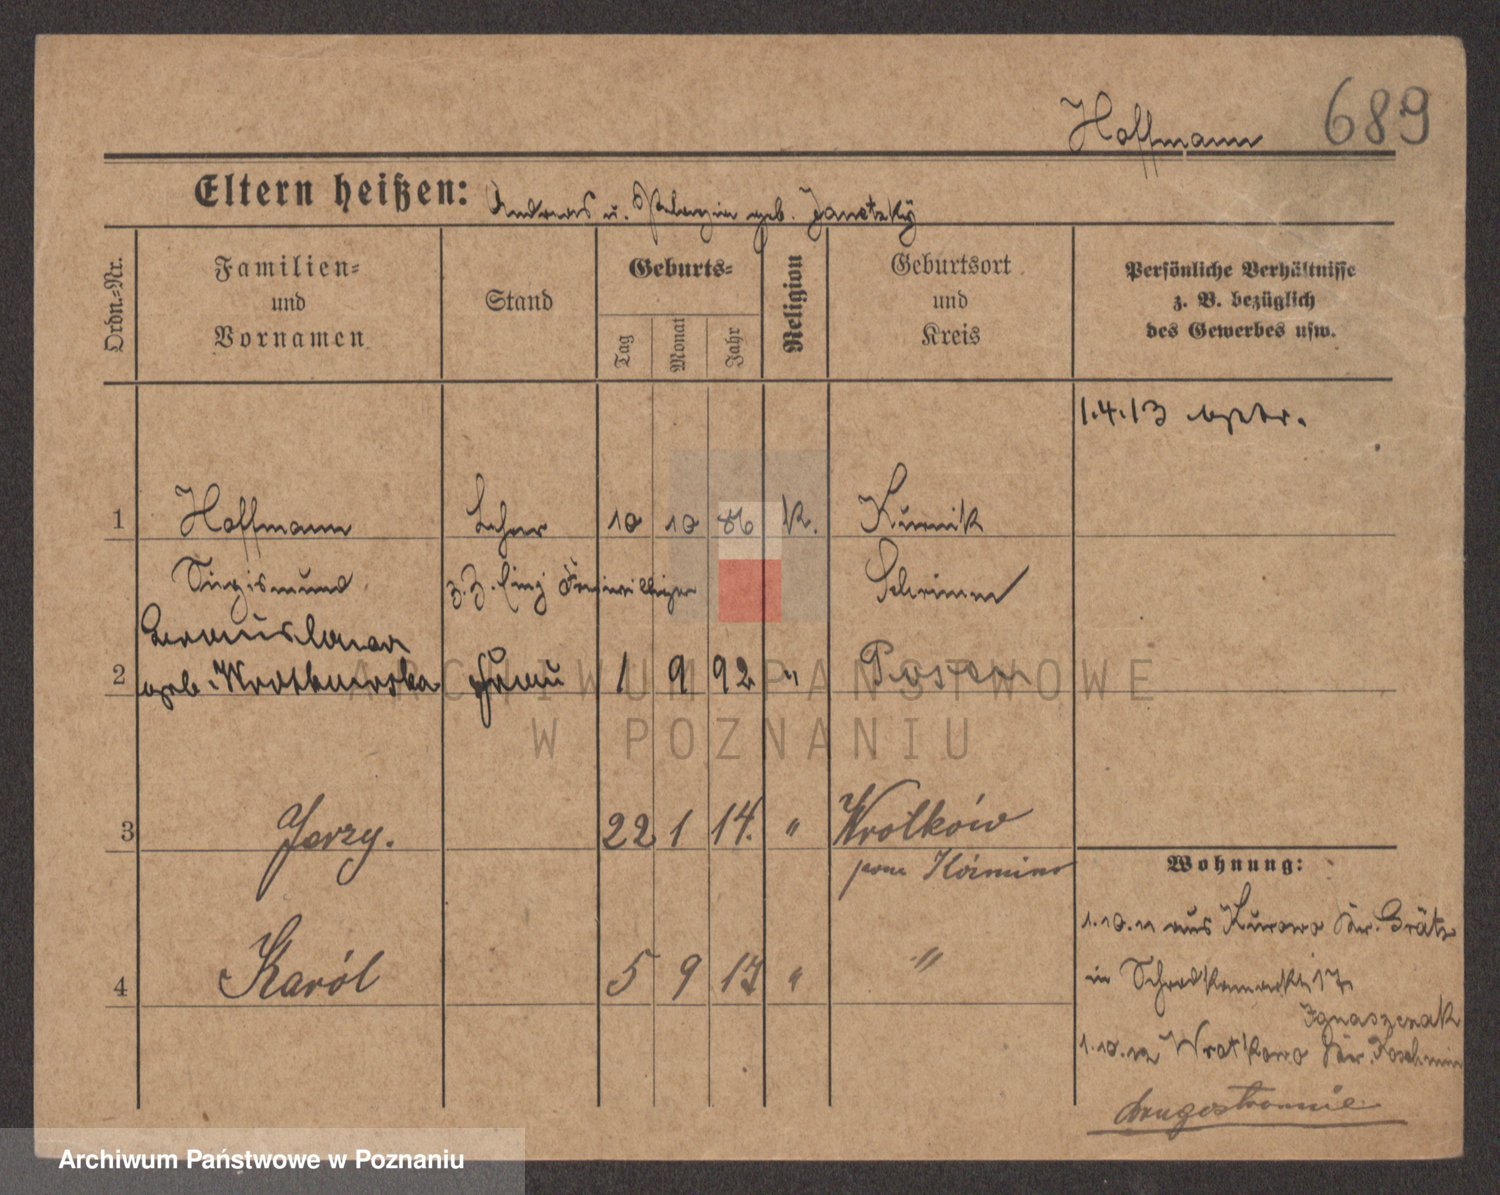 Hoffmann 689
Eltern heißen: Andreas u. Pelagia geb. Janetzky
Ordn.=Nr.
Familien=
und
Vornamen
Stand
Geburts=
Tag
Monat
Jahr
Religion
Geburtsort
und
Kreis
Persönliche Verhältnisse
z. B. bezüglich
des Gewerbes usw.
1.4.13
1 Hoffmann Lehrer 10 10 86 K. Kurnik
Siegismund z. Z. Einj Freiwilliger Schrimm
geb. Frau 1 9 92 " Posen
2
3 Jerzy. 22 1 14. " Wrotków
pow Koźmino
4 Karól 5 9 17 " "
Wohnung:
1.10.11 aus Kurowo Kr. Grätz
in 17
Ignaszewak
1.10.12 Wrotkowo Kr. Koschmin
drugostronnie
ARCHIWUM PAŃSTWOWE
W POZNANIU
Archiwum Państwowe w Poznaniu